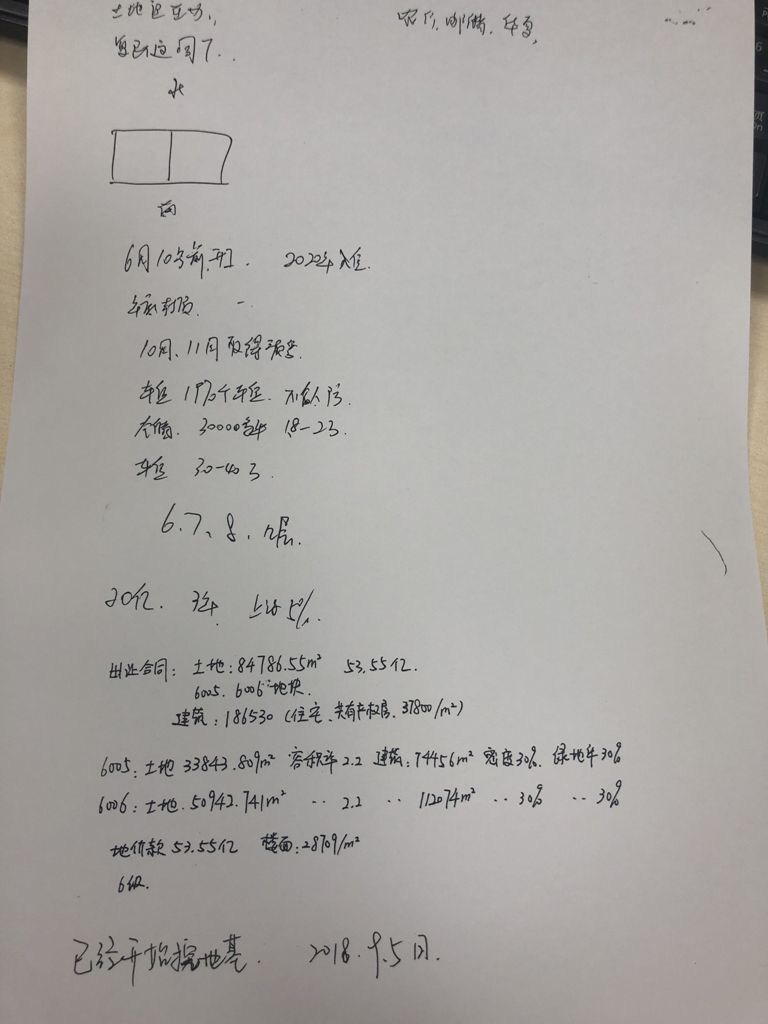 北
南
6月10号前.开工. 2022年入住.
年底封顶.
10月、11月取得预售.
车位 1170个车位.
仓储. 30000 18-23.
车位 30-40万
6.7、8、层.
20亿. 3年. 上浮5%.
出让合同: 土地:84786.55m² 53.55亿.
6005. 6006地块.
建筑:186530 (住宅、共有产权房、37800/m²)
6005:土地 33843.809m² 容积率 2.2 建筑:74456m² 密度30%. 绿地率30%
6006:土地.50942.741m² ·· 2.2 ·· 112074m² ·· 30% ·· 30%
地价款 53.55亿 楼面:28709/m²
6级.
已经开始挖地基. 2018.9.5日.